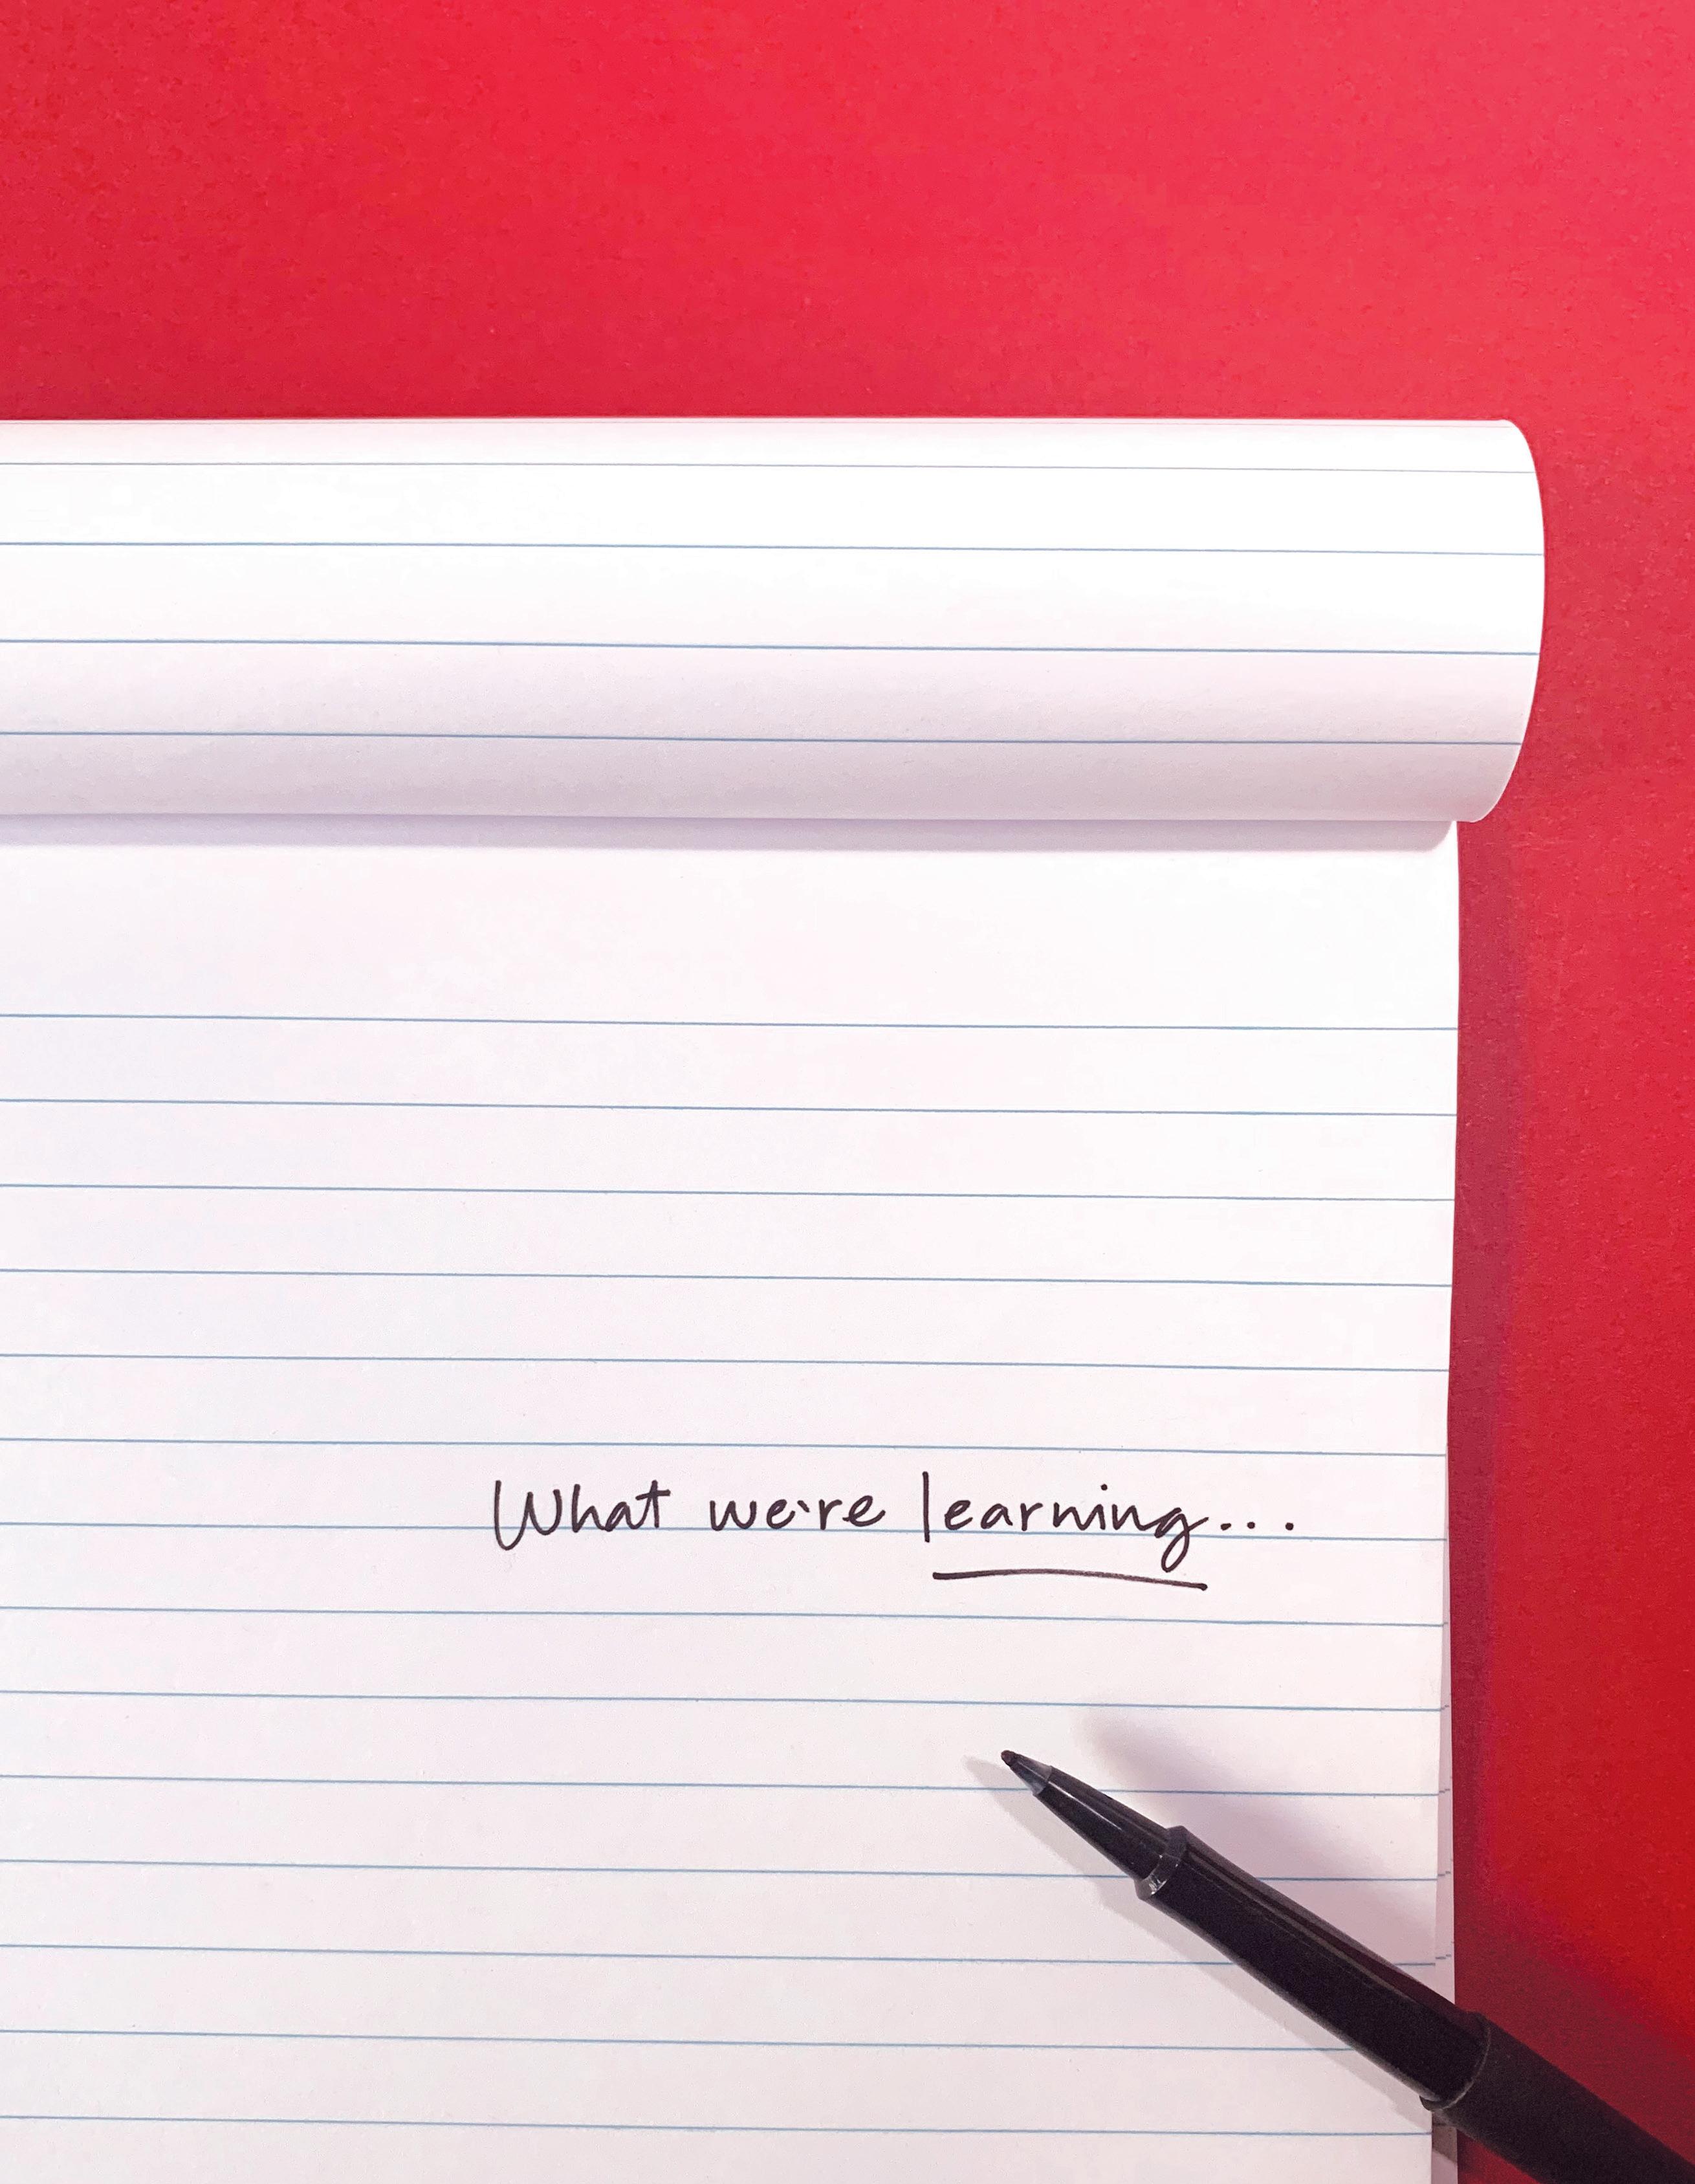 What we're learning...